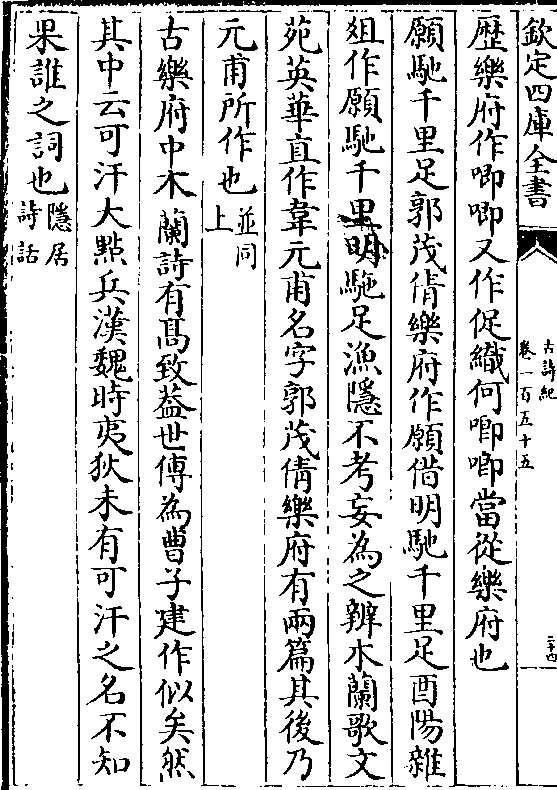 欽定四庫全書
古詩紀
卷一百五十五
二十四
歴樂府作唧唧又作促織何唧唧當從樂府也
願馳千里足郭茂倩樂府作願借明馳千里足酉陽雜
俎作願馳千里明駞足漁隱不考妄為之辨木蘭歌文
苑英華直作韋元甫名字郭茂倩樂府有兩篇其後乃
元甫所作也並同上
古樂府中木蘭詩有髙致葢世傳為曹子建作似矣然
其中云可汗大點兵漢魏時夷狄未有可汗之名不知
果誰之詞也隱居詩話